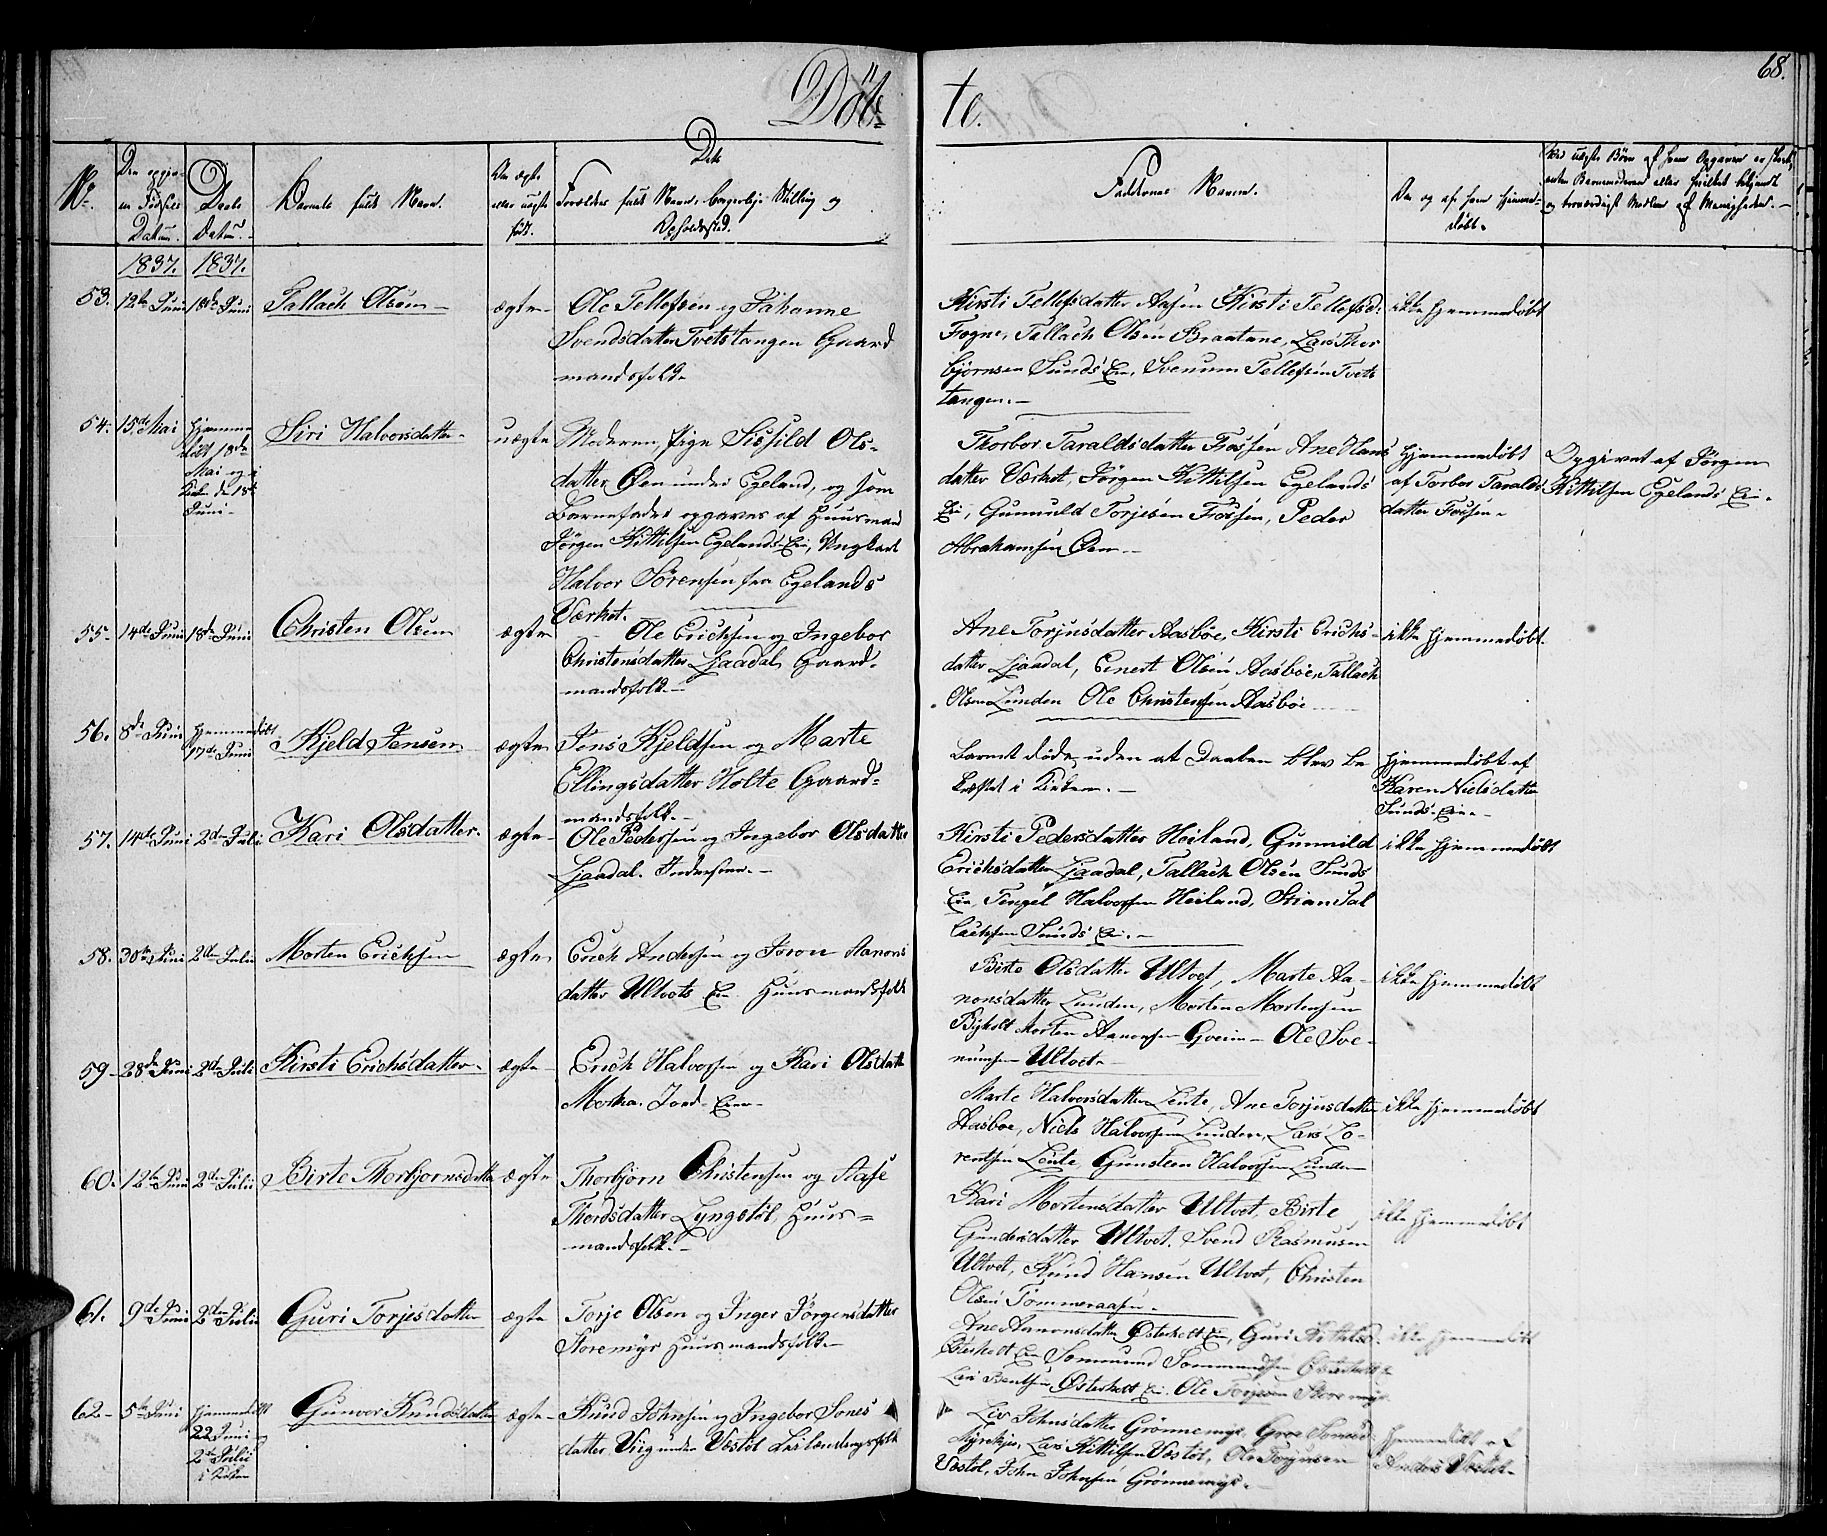 Döb-
te.
68.
No.
Den opgiv-
ne Födsels
Datum.
Daabs
Datum.
Barnets fulde Navn.
Om ægte
eller uægte
født.
Dets
Forældres fulde Navn, borgerlige Stilling og
Opholdssted.
Faddernes Navne.
Om og af hvem hjemme-
døbt.
1837. 1837.
53. 12te Juni 18de Juni Tallach Olsen ægte
Ole Tellefsen og Johanne
Svendsdatter Tvetstangen Gaard
mandsfolk.
Kirsti Tellefsdatter Aasen Kirsti Tellefsd.
Fogne, Tallach Olsen Braatane, Lars Thor
bjørnsen Sunds Eie, Svenum Tellefsen Tvets
tangen.
ikke hjemmedøbt
54. 15de Mai
Hjemme
døbt 18de
Mai og i
Kirken den 18de
Juni
Siri Halvorsdatter uægte
Moderen, Pige Sissild Ols-
datter Øen under Egeland, og som
Barnefader opgaves af Huusmand
Jörgen Kittilsen Egelands Eie, Ungkarl
Halvor Sörensen fra Egelands
Værket.
Thorbor Taraldsdatter Fossen Ane Hans
datter Værket, Jörgen Kittilsen Egelands
Eie, Gunuld Torjesen Fossen, Peder
Abrahamsen Øen
Hjemmedøbt
af Torbor Taralds
datter Fossen
Opgivet af Jörgen
Kittilsen Egelands Eie
55. 14de Juni 18de Juni Christen Olsen ægte
Ole Erichsen og Ingebor
Christensdatter Ljaadal, Gaard-
mandsfolk.
Ane Torjusdatter Aasböe, Kirsti Erichs-
datter Ljaadal, Enert Olsen Aasböe, Tallach
Olsen Lunden Ole Christensen Aasböe
ikke hjemmedøbt.
56. 8de Juni
hjemmedøbt
17de Juni
Kjeld Jensen ægte
Jens Kjeldsen og Marte
Ellingsdatter Holte Gaard-
mandsfolk.
Barnet døde, uden at Daaben blev be
kræftet i Kirken.
hjemmedøbt af
Karen Nielsdatter
Sunds Eie
57. 14de Juni 2den Juli Kari Olsdatter. ægte
Ole Pedersen og Ingebor Olsdatter
Ljaadal. Inderster.
Kirsti Pedersdatter Heiland, Gunnild
Erichsdatter Ljaadal, Tallach Olsen Sunds
Eie, Tengel Halvorsen Heiland, Stian Tal
lachsen Sunds Eie.
ikke hjemmedøbt
58. 30te Juni 2den Juli Morten Erichsen ægte
Erich Andersen og Joron Aanons
datter Ultvets Eie Huusmandsfolk
Birte Olsdatter Ultvet, Marte Aa-
nonsdatter Lunden, Morten Mortensen
Bjkolt Morten Aanonsen Gveim Ole Sve-
numsen Ultvet
ikke hjemmedøbt
59 28de Juni 2den Juli Kirsti Erichsdatter ægte
Erich Halvorsen og Kari Olsdatter
Morka. Jord-Eier
Marte Halvorsdatter Leite, Ane Torjusdatter
Aasböe, Niels Halvorsen Lunden, Lars Lo-
rentsen Leite, Gunsteen Halvorsen Lunden
ikke hjemmedøbt
60. 12te Juni 2den Juli Birte Thorbjornsdatter ægte
Thorbjörn Christensen og Aase
Thordsdatter Lyngstöl, Huus-
mandsfolk.
Kari Mortensdatter Ultvet, Birte
Gundersdatter Ultvet. Svend Rasmusen
Ultvet, Knud Hansen Ultvet, Christen
Olsen Tommeraasen.
ikke hjemmedøbt
61. 9de Juni 2den Juli Guri Torjesdatter ægte
Torje Olsen og Inger Jörgensdatter
Storemyr Huusmandsfolk
Ane Aanonsdatter Østerholt Eie, Guri Kittilsd.
Østerholt Eie Sommund Sommundsen Østerholt
Lars Bentsen Østerholt Eie. Ole Torjesen Storemyr
ikke hjemmedøbt
62 5te Juni
hjemmedøbt
22 Juni og
2den Juli
i Kirken
Gunvor Knudsdatter ægte
Knud Johnsen og Ingebor Jones
datter Viig under Væstöl Leilændingsfolk
Liv Johnsdatter Grönnemyr, Groe Jonesd.
Myrekjer, Lars Kittilsen Væstöl, Ole Torjusen
Væstöl, John Johnsen Grönnemyr.
hjemmedøbt af
Anders Væstöl